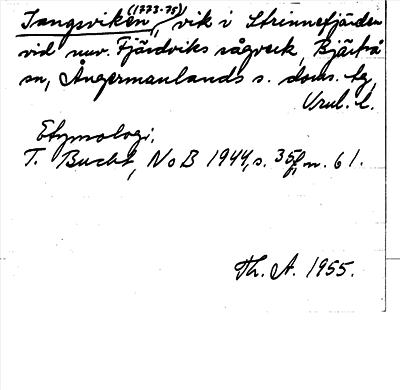 Tangsviken (1773-75), vik i Strinnefjärden
vid nuv. Fjärdviks sågverk, Bjärtrå
sn, Ångermanlands s. doms. tg,
T. Bucht, NoB 1944, s. 35f, n. 61.
Etymologi.
Th. A. 1955.